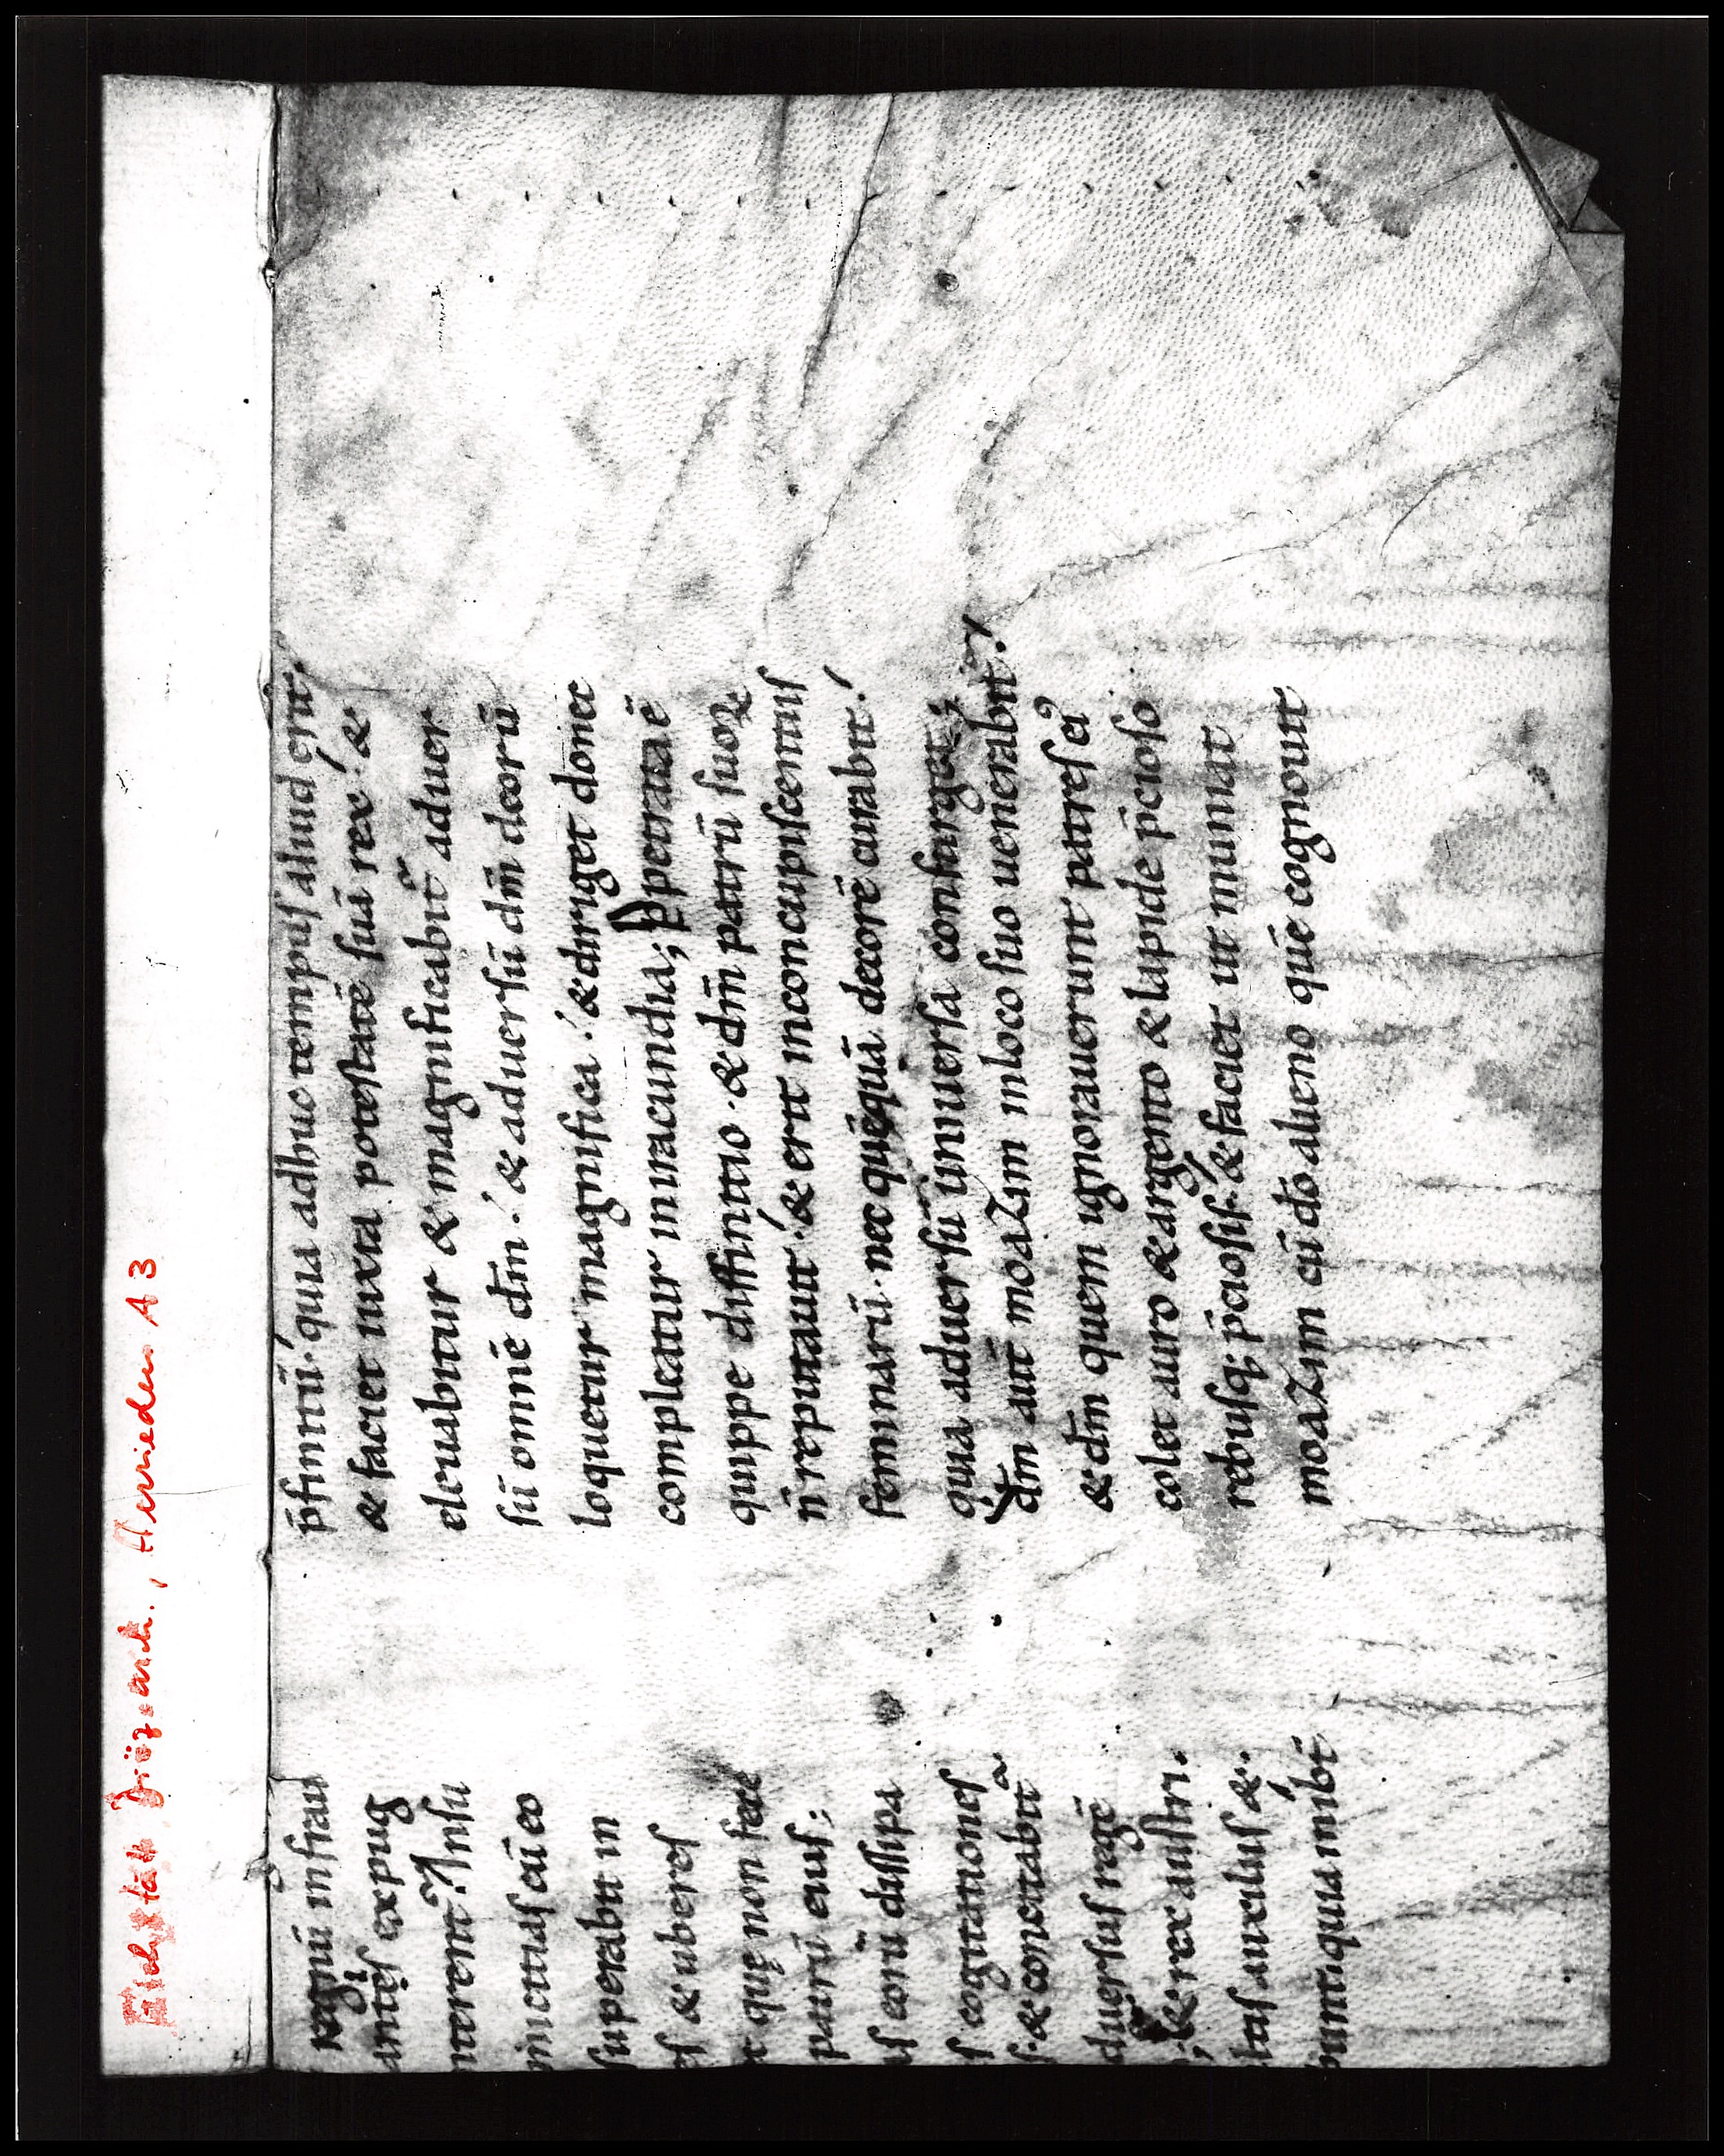 Eichstätt Diözesanarch., Herrieden A 3
regnū infrau
antes expug
nterent᷑. Insu
inictitias cū eo
superabit in
es & uberes
t quę non fece
patrū eius;
is eorū dissipa
s cogitationes
s. & concitabit᷑
duersus regē
; & rex austri.
ltis auxiliis &
bunt quia inibt̄
p̄finitū. quia adhuc tempus aliud erit.
& faciet iuxta potestatē suā rex. &
eleuabitur & magnificabit᷑ aduer
sū omnē dm̄. & aduersū dm̄ deorū
loquetur magnifica. & diriget donec
compleatur iniracundia; Ppetrata ē
quippe diffinitio. & dm̄ patrū suoꝝ
n̄ reputauit. & erit inconcupiscentiis
feminarū. nec quēquā deorē curabit.
quia aduersū uniuersa consurget;
dm̄ aut̄ moaZim inloco suo uenerabit᷑.
& dm̄ quem ignorauerunt patres ei᾿
colet auro & argento & lapide p̄cioso
rebusq; p̄ciosis. & faciet ut muniat
moaZim cū do alieno quē cognouit